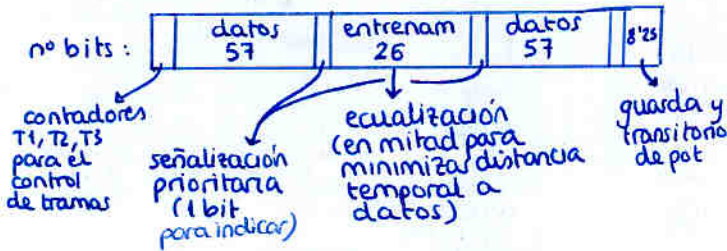 datos entrenam datos
nº bits: 57 26 57 8'25
contadores
T1, T2, T3
para el
control
de tramas
señalización
prioritaria
(1 bit
para indicar)
ecualización
(en mitad para
minimizar distancia
temporal a
datos)
guarda y
transitorio
de pot